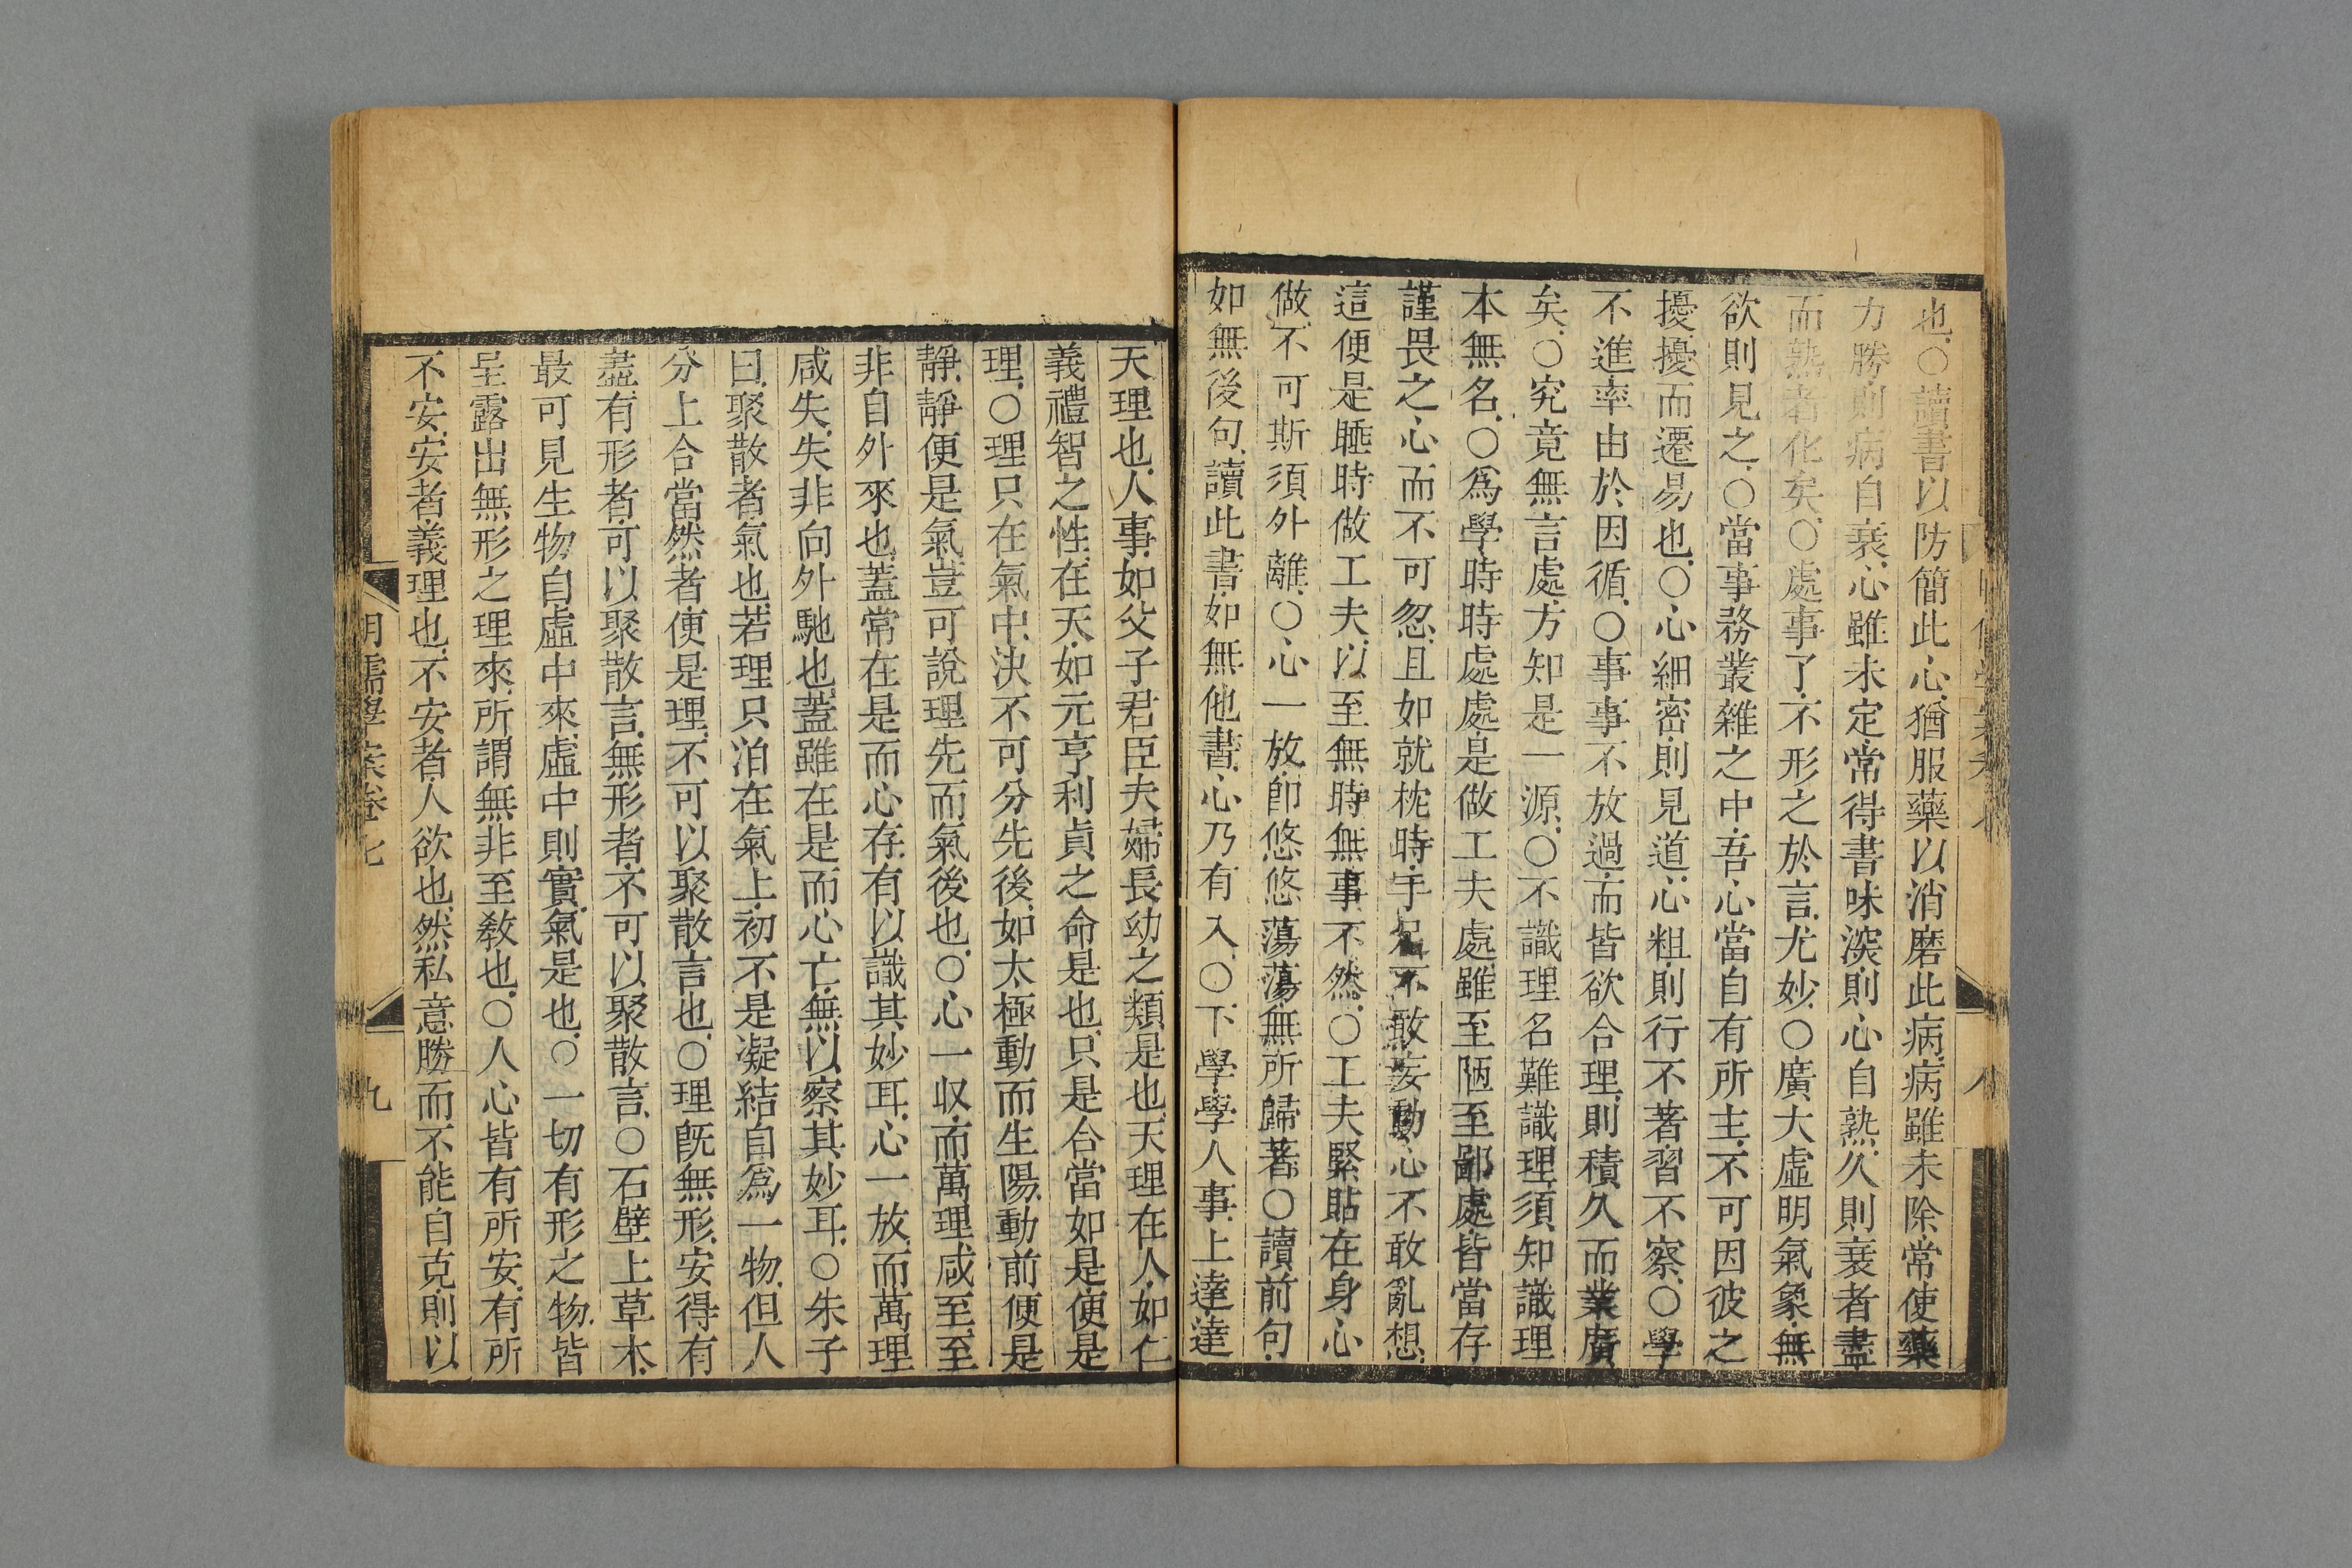 也○讀書以防簡此心猶服藥以消磨此病病雖未除常使藥
力勝則病自衰心雖未定常得書味深則心自熟久則衰者盡
而熟者化矣○處事了不形之於言尤妙○廣大虛明氣象無
欲則見之○當事務叢雜之中吾心當自有所主不可因彼之
擾擾而遷易也○心細密則見道心粗則行不著習不察○學
不進率由於因循○事事不放過而皆欲合理則積久而業廣
矣○究竟無言處方知是一源○不識理名難識理須知識理
本無名○爲學時時處處是做工夫處雖至陋至鄙處皆當存
謹畏之心而不可忽且如就枕時手足不敢妄動心不敢亂想
這便是睡時做工夫以至無時無事不然○工夫緊貼在身心
做不可斯須外離○心一放卽悠悠蕩蕩無所歸著○讀前句
如無後句讀此書如無他書心乃有入○下學學人事上達達
天理也人事如父子君臣夫婦長幼之類是也天理在人如仁
義禮智之性在天如元亨利貞之命是也只是合當如是便是
理○理只在氣中決不可分先後如太極動而生陽動前便是
靜靜便是氣豈可說理先而氣後也○心一收而萬理咸至至
非自外來也蓋常在是而心存有以識其妙耳心一放而萬理
咸失失非向外馳也蓋雖在是而心亡無以察其妙耳○朱子
曰聚散者氣也若理只泊在氣上初不是凝結自爲一物但人
分上合當然者便是理不可以聚散言也○理旣無形安得有
盡有形者可以聚散言無形者不可以聚散言○石壁上草木
最可見生物自虛中來虛中則實氣是也○一切有形之物皆
呈露出無形之理來所謂無非至敎也○人心皆有所安有所
不安安者義理也不安者人欲也然私意勝而不能自克則以
明儒學案卷七
九